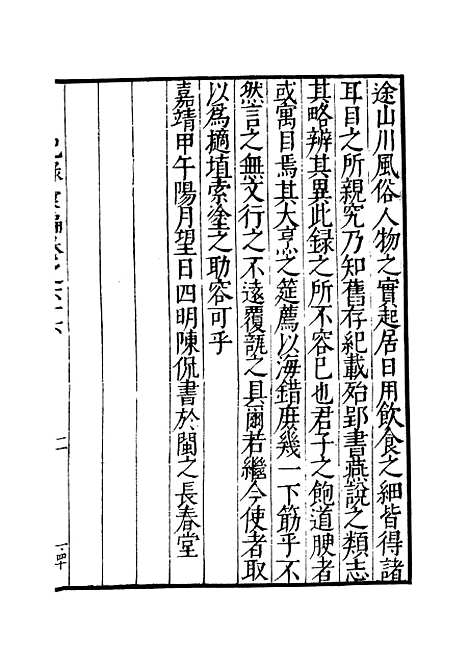 途山川風俗人物之實起居日用飲食之細皆得諸
耳目之所親究乃知舊存紀載殆郢書燕說之類志
其略辨其異此録之所不容已也君子之飽道腴者
或寓目焉其大烹之筵薦以海錯庶幾一下筋乎不
然言之無文行之不遠覆瓿之具爾若繼今使者取
以為擿埴索塗之助容可乎
嘉靖甲午陽月望日四明陳侃書於閩之長春堂
紀錄彙編卷之六十六
二